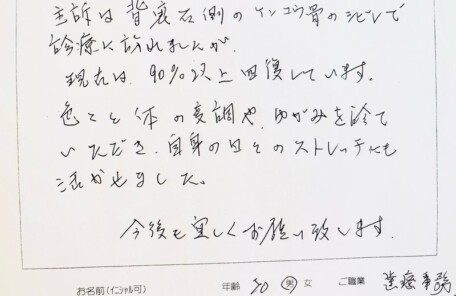 主訴は背裏右側のケンコウ骨のシビレで
診療に訪れましたが、
現在は、90%以上回復しています。
色々と体の変調や、ゆがみを診て
いただき、自身の日々のストレッチにも
活かせました。
今後も宜しくお願い致します。
お名前(イニシャル可) 年齢 50 男 女 ご職業 医療事務